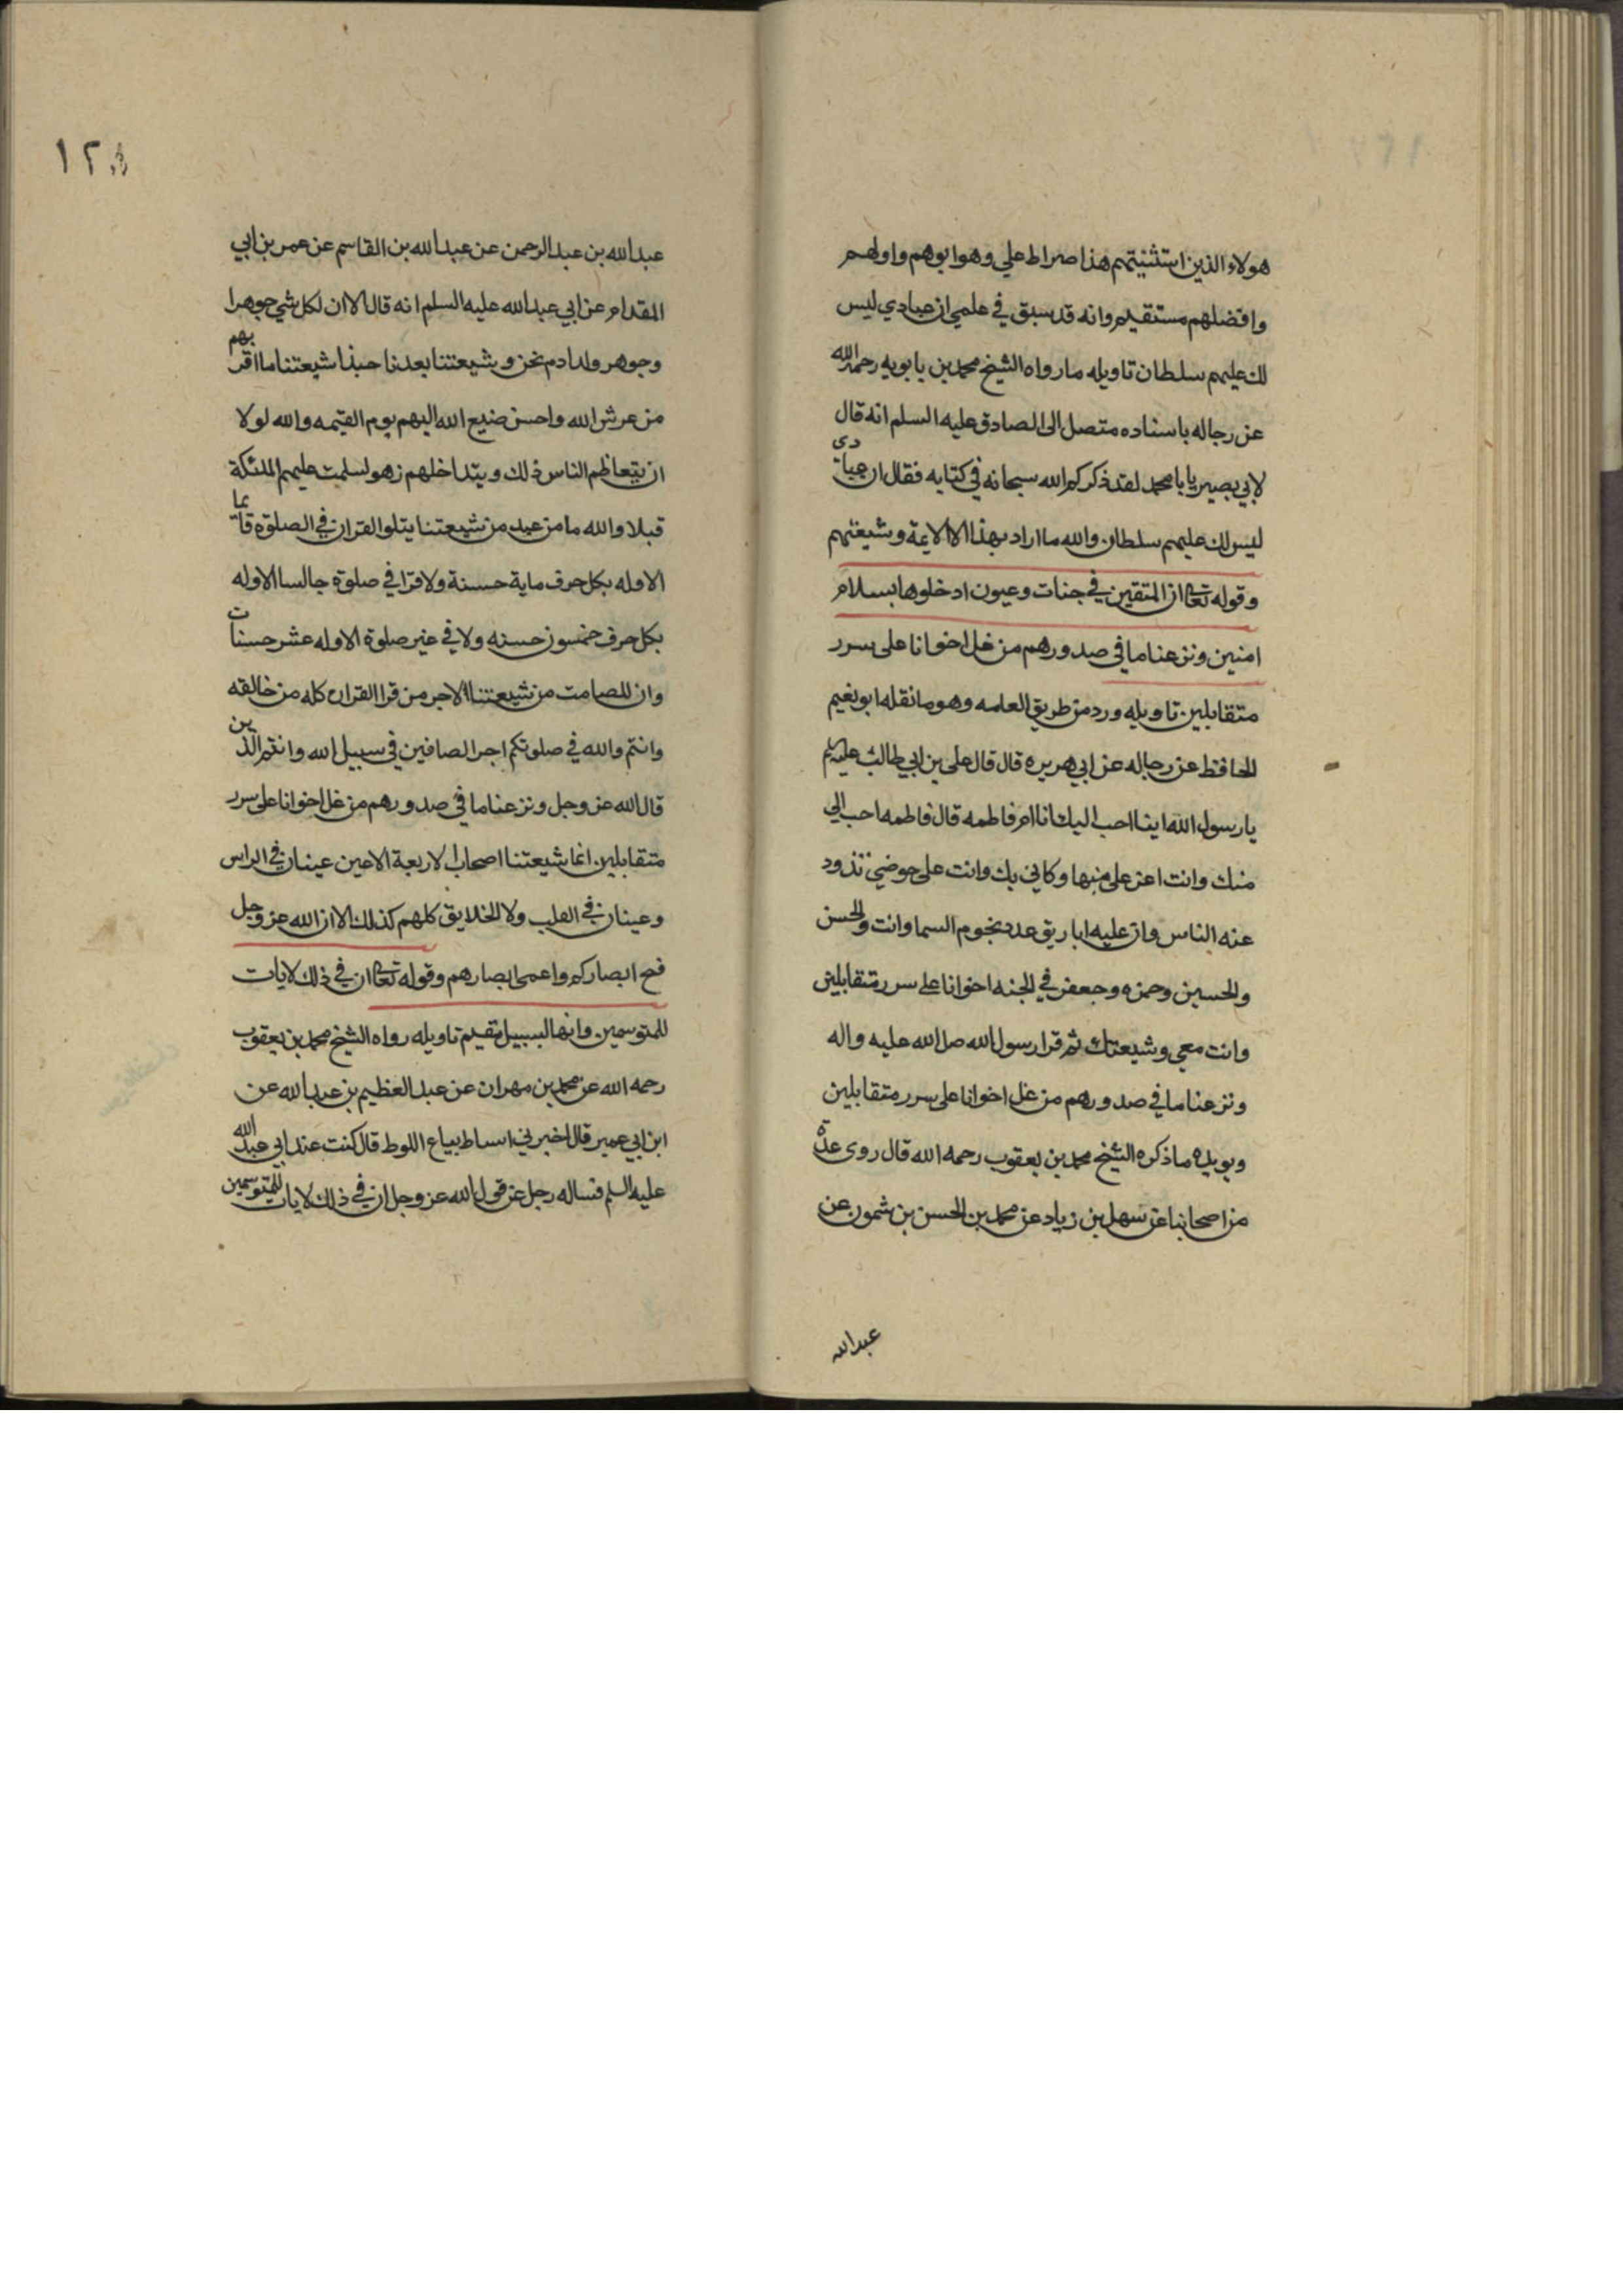 هولاء الذين استثنيتهم هذا صراط علي وهو ابوهم واولهم
وافضلهم مستقيم وانه قد سبق في علمي ان عبادي ليس
لك عليهم سلطان تاويله ما رواه الشيخ محمد بن بابويه رحمه الله
عن رجاله باسناده متصل الى الصادق عليه السلم انه قال
لابي بصير يابا محمد لقد ذكركم الله سبحانه في كتابه فقال ان عبادي
ليس لك عليهم سلطان والله ما اراد بهذا الا الايمة وشيعتهم
وقوله تعالى ان المتقين في جنات وعيون ادخلوها بسلام
امنين ونزعنا ما في صدورهم من غل اخوانا على سرر
متقابلين تاويله ورد من طريق العامه وهو ما نقله ابو نعيم
الحافظ عن رجاله عن ابي هريره قال قال علي بن ابي طالب عليه السلم
يا رسول الله اينا احب اليك انا ام فاطمه قال فاطمه احب الي
منك وانت اعز علي منها وكاني بك وانت على حوضي تذود
عنه الناس وان عليه اباريق عدد نجوم السما وانت والحسن
والحسين وحمزه وجعفر في الجنه اخوانا على سرر متقابلين
وانت معي وشيعتك ثم قرا رسول الله صلى الله عليه واله
ونزعنا ما في صدورهم من غل اخوانا على سرر متقابلين
ويويده ما ذكره الشيخ محمد بن يعقوب رحمه الله قال روى عدة
من اصحابنا عن سهل بن زياد عن محمد بن الحسن بن شمون عن
عبدالله
١٢٥
عبد الله بن عبد الرحمن عن عبد الله بن القاسم عن عمر بن ابي
المقدام عن ابي عبد الله عليه السلم انه قال الا ان لكل شي جوهرا
وجوهر ولد ادم نحن وشيعتنا بعدنا حبذا شيعتنا ما اقربهم
من عرش الله واحسن صنيع الله اليهم يوم القيمه والله لولا
ان يتعاظم الناس ذلك ويتداخلهم زهو لسلمت عليهم الملئكة
قبلا والله ما من عبد من شيعتنا يتلو القران في الصلوة قائما
الا وله بكل حرف ماية حسنة ولا قرا في صلوة جالسا الا وله
بكل حرف خمسون حسنه ولا في غير صلوة الا وله عشر حسنات
وان للصامت من شيعتنا لاجر من قرا القران كله من خالفه
وانتم والله في صلوتكم اجر الصافين في سبيل الله وانتم الذين
قال الله عز وجل ونزعنا ما في صدورهم من غل اخوانا على سرر
متقابلين انما شيعتنا اصحاب الاربعة الاعين عينان في الراس
وعينان في القلب ولا الخلايق كلهم كذلك الا ان الله عز وجل
فتح ابصاركم واعمى ابصارهم وقوله تعالى ان في ذلك لايات
للمتوسمين وانها لبسبيل مقيم تاويله رواه الشيخ محمد بن يعقوب
رحمه الله عن محمد بن مهران عن عبد العظيم بن عبد الله عن
ابن ابي عمير قال اخبرني اسباط بياع اللوط قال كنت عند ابي عبد الله
عليه السلم فساله رجل عن قول الله عز وجل ان في ذلك لايات للمتوسمين